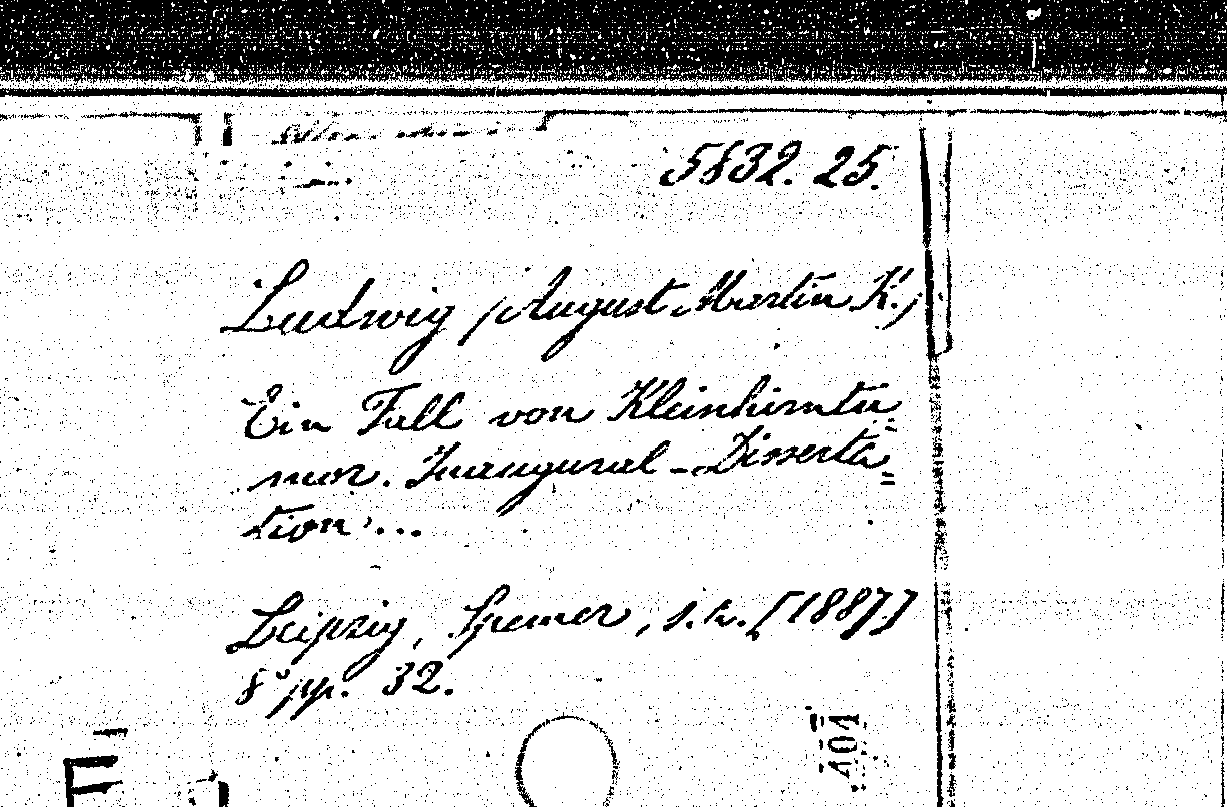 5832. 25.
Ludwig (August Martin K.)
Ein Fall von Kleinhirntu=
mor. Inaugural-Disserta=
tion ...
Leipzig, Spamer, s.a. [1887.]
8° pp. 32.
404